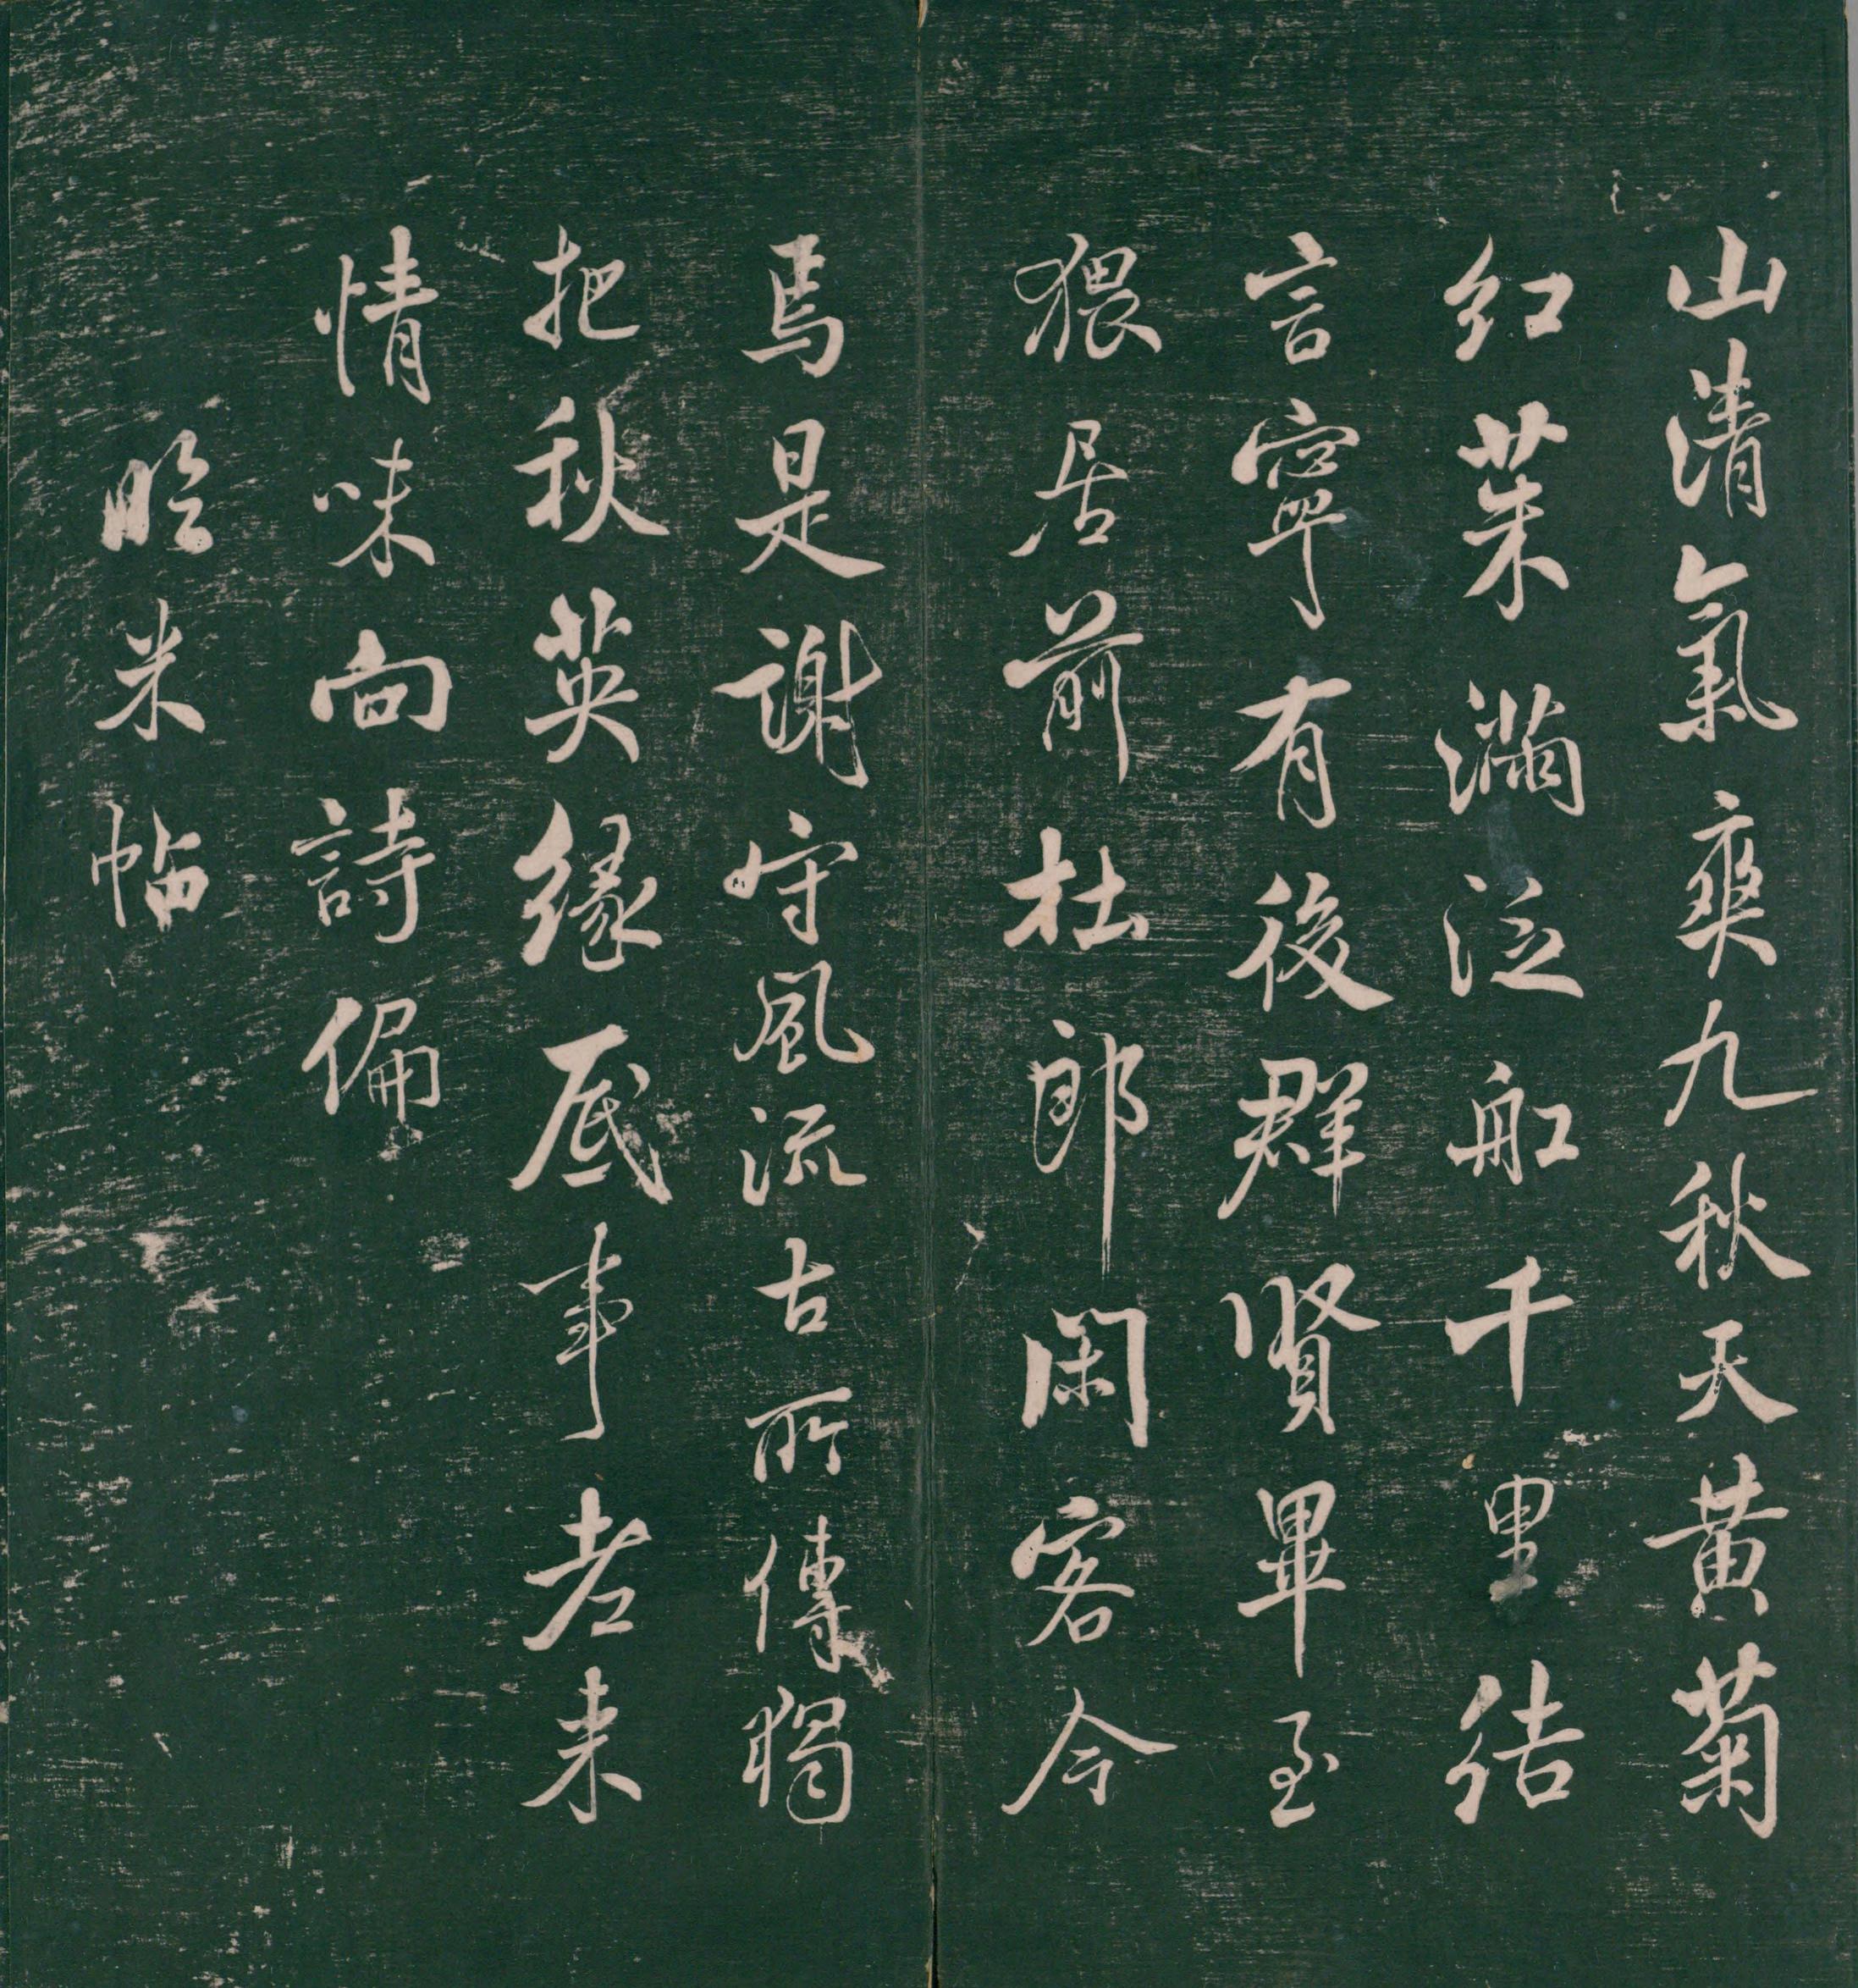 山清氣爽九秋天黄菊
紅茱滿泛船千里結
言寧有後群賢畢至
猥居前杜郎閑客今
焉是謝守風流古所傳獨
把秋英緣底事老来
情味向詩偏
臨米帖